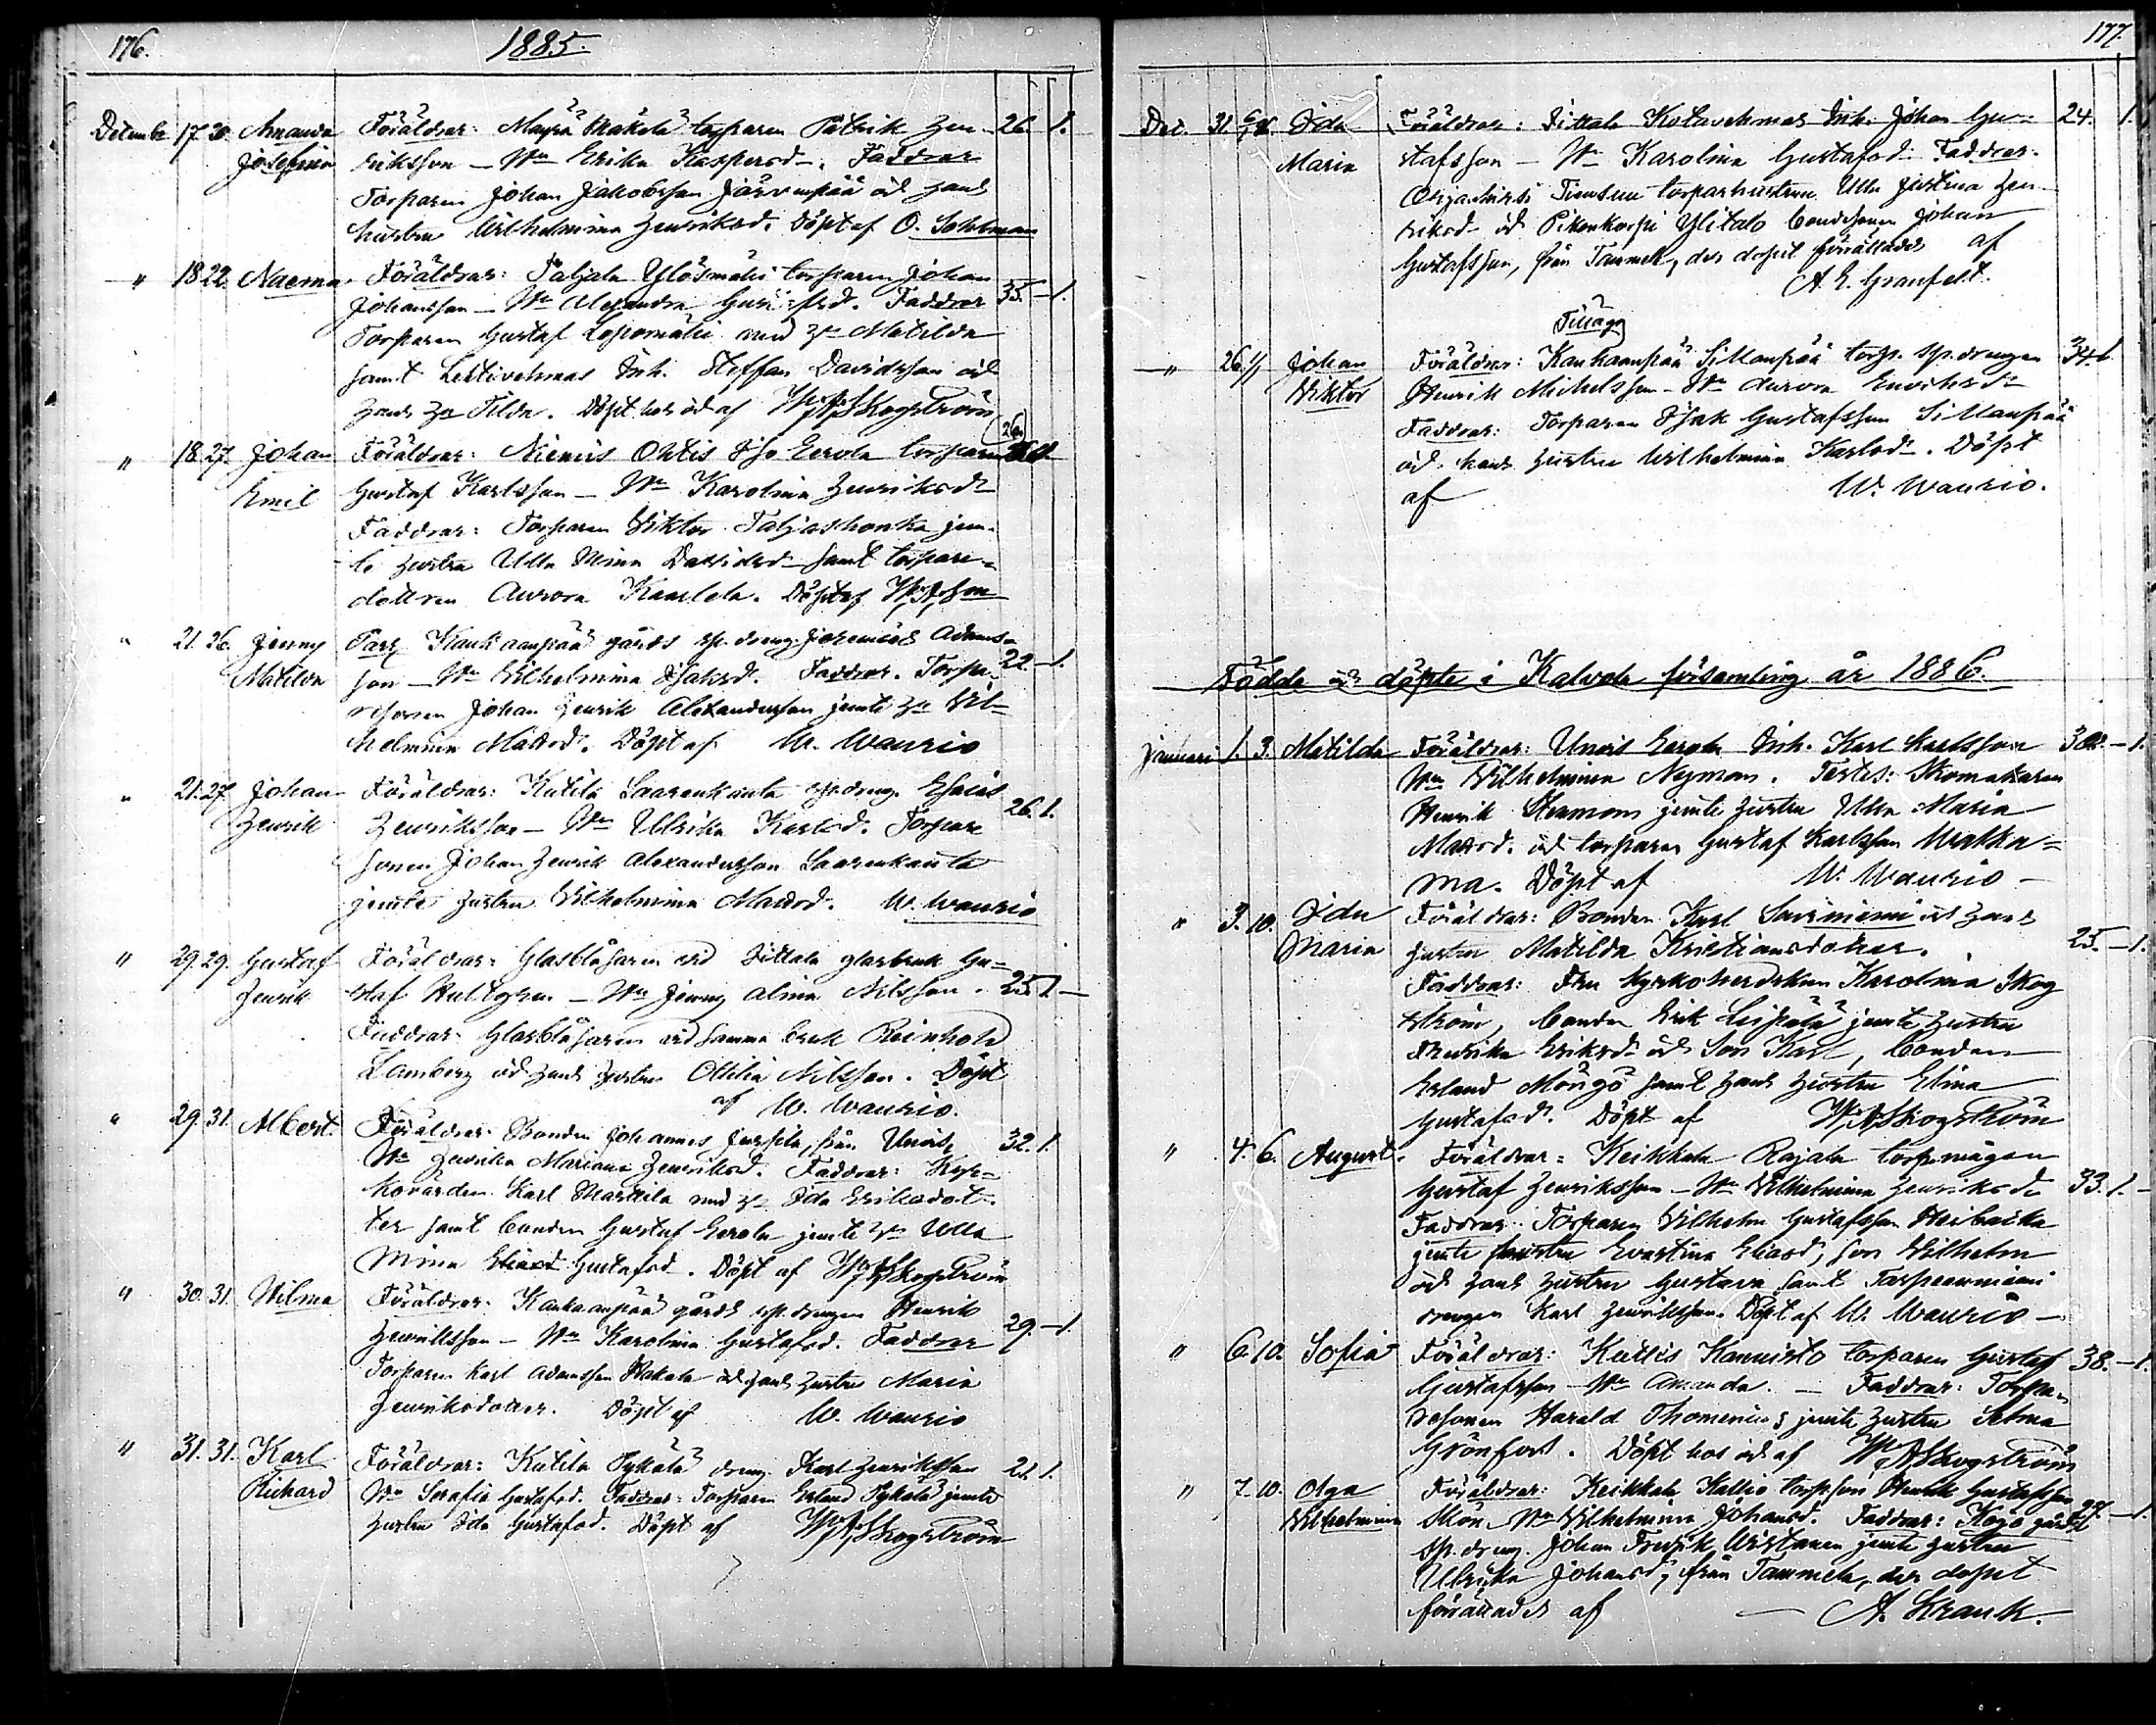 176.
1885.
December 17. 20. Amanda Föräldrar: Mäkelä torparen Patrik Hen- 26. 1.
Josefina riksson – Hu Erika Kaspersd. Faddrar
Torparen Johan Jakobsson Järvenpää och hans
hustru Wilhelmina Henriksd. Döpt af O. Sohlman
" 18 22. Naema. Föräldrar: Taljala Ylösmäki torparen Johan
Johansson – Hu Alexandra Faddrar 35. – 1.
Torparen Gustaf med Hu Matilda
samt Inh. Steffan Davidsson och
hans Hu Tilda. Döpt hos och af W. A. Skogström
" 18. 27. Johan Föräldrar: Niemis Ohtis Eerola torparen 26
Emil Gustaf Karlsson – Hu Karolina Henriksd.
Faddrar: Torparen Viktor Taljashonka jem-
te hustru Ulla Mina Davidsd. samt torpare-
dottren Aurora Kaarlela. Döpt af
" 21. 26. Jenny Kankaanpää gårds sp. dreng Jeremias Adams-
Matilda son – Hu Wilhelmina Isaksd. Faddrar. Torpa- 22 – 1.
resonen Johan Henrik Alexandersson jemte Hu Vil-
helmina Mattsd. Döpt af W. Waurio
" 21. 27. Johan Föräldrar: Kutila Saarenkanta sp. dreng Esaias
Henrik Henriksson – Hu Ulrika Karlsd. Torpare 26. 1.
sonen Johan Henrik Alexandersson Saarenkanta
jemte hustru Vilhelmina Mattsd. W. Waurio
" 29. 29. Gustaf Föräldrar: Glasblåsaren vid Iittala glasbruk Gu-
Henrik staf Hultgren – Hu Jenny Alina Nilsson. 25. 1. –
Faddrar: Glasblåsaren vid samma bruk Reinhold
Lamberg och hans hustru Ottilia Nilsson. Döpt
af W. Waurio.
" 29. 31. Albert. Föräldrar: Bonden Johannes Jussila från Unais, 32. 1.
Hu Henrika Mariana Henriksd. Faddrar: Kyr-
kovärden Karl Marttila med Hu Ida Eriksdot-
ter samt bonden Gustaf Eerola jemte Hu Ulla
Mina Gustafsd. Döpt af W. A. Skogström
" 30. 31. Wilma Föräldrar. Kankaanpää gårds sp. drengen Henrik
Henriksson – Hu Karolina Gustafsd. Faddrar 29. – 1.
Torparen Karl Adamsson Wakala och hans hustru Maria
Henriksdotter. Döpt af W. Waurio
" 31. 31. Karl Föräldrar: Kutila Pykälä dreng Karl Henriksson 21. 1.
Richard Hu Serafia Gustafsd. Faddrar: Torparen Erland Pykälä jemte
hustru Ida Gustafsd. Döpt af W. A. Skogström
177.
Dec. 31. Ida Föräldrar: Iittala Inh. Johan Gu- 24. 1.
Maria stafsson – Hu Karolina Gustafsd. Faddrar.
torparhustrun Ulla Justina Hen-
riksd. och Ylitalo bondesonen Johan
Gustafsson, från Tammela, der dopet förrättades af
A. E. Granfelt.
Tillägg
" 26 1/1 Johan Föräldrar: Kankaanpää Sillanpää torp. sp. drengen 34. 1.
Viktor Henrik Mickelsson – Hu Aurora
Faddrar: Torparen Isak Gustafsson Sillanpää
och hans hustru Wilhelmina Karlsd. Döpt
af W. Waurio.
Födde och döpte i Kalvola församling år 1886.
Januari 1. 3. Matilda Föräldrar: Unais Eerola Inh. Karl Karlsson 38. – 1.
Hu Vilhelmina Nyman. Testes: Skomakaren
Henrik jemte hustru Ulla Maria
Mattsd. och torparen Gustaf Karlsson Wakka-
ma. Döpt af W. Waurio –
" 3. 10. Ida Föräldrar: Bonden Karl Saviniemi och hans
Maria hustru Matilda Kristiansdotter. 25. – 1.
Faddrar: Fru kyrkoherdskan Karolina Skog
ström, bonden Erik Leipälä jemte hustru
Fredrika Eriksd. och son Karl, bonden
Erland samt hans hustru Elina
Gustafsd. Döpt af W. A. Skogström
" 4. 6. August. Föräldrar: Keikkala Rajala torp.mågen
Gustaf Henriksson – Hu Vilhelmina Henriksd. 33. 1. –
Faddrar. Torparen Vilhelm Gustafsson
jemte hustru Evastina Eliasd., son Vilhelm
och hans hustru Gustava samt
drengen Karl Henriksson. Döpt af W. Waurio –
" 6 10. Sofia Föräldrar: Kutilis Kannisto torparen Gustaf 38. – 1.
Gustafsson – Hu Amanda. – Faddrar: Torpa-
resonen Harald Thomenius jemte hustru Selma
Grönfors. Döpt hos och af W. A. Skogström
" 7. 10. Olga Föräldrar: Keikkala Kallio torp.son Henrik Gustafsson
Vilhelmina Hu Vilhelmina Johansd. Faddrar: gårds 27 – 1.
sp. dreng. Johan Fredrik jemte hustru
Ulrika Johansd., från Tammela, der dopet
förrättades af – A. Krank.